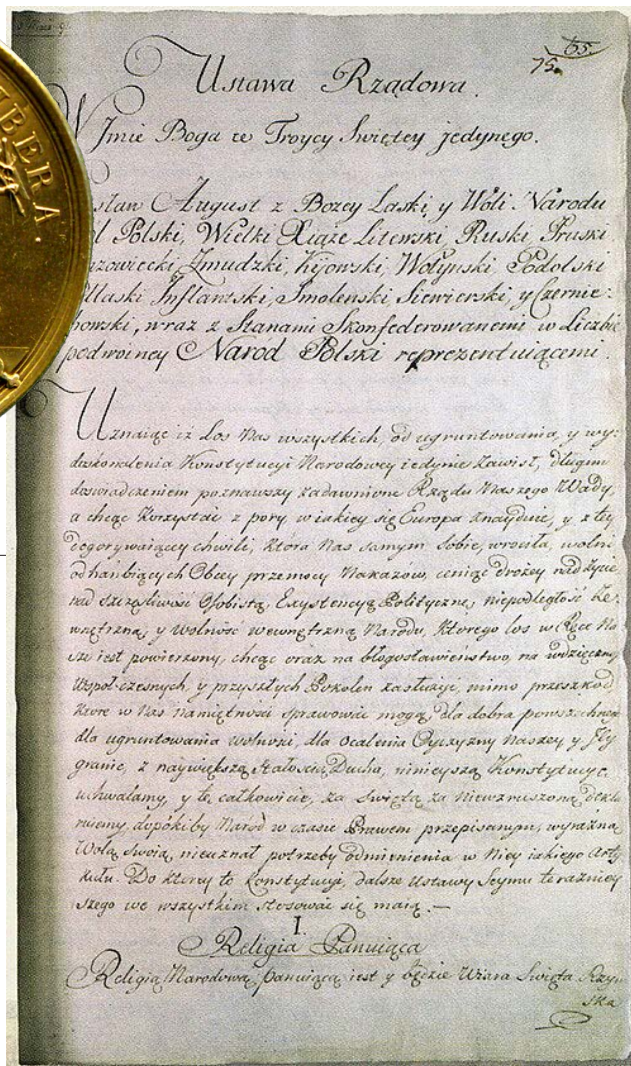 65.
75.
Ustawa Rządowa.
W Jmie Boga w Troycy Swiętey jedynego.
August z Bozey Łaski, y Woli Narodu
Polski, Wielki Xiąże Litewski, Ruski Pruski
Zmudzki, Kijowski, Wołynski, Podolski
Inflantski, Smolenski Siewierski, y Czernie:
howski, wraz z Stanami Skonfederowanemi w Liczbie
podwoiney Narod Polski reprezentuiącemi.
Uznaiąc iż Los Nas wszystkich, od ugruntowania, y wy:
doskonalenia Konstytucyi Narodowey iedynie zawisł, długim
doswiadczeniem poznawszy zadawnione Rządu Naszego Wady,
a chcąc korzystać z pory, w iakiey się Europa znayduie, y z tey
dogorywaiącey chwili, która Nas samym Sobie, wrociła, wolni
od hanbiących Obcey przemocy Nakazów, ceniąc drożey nad życie,
nad szczęsliwość Osobistą, Exystencyą Polityczną, niepodległość Ze:
wnętrzną, y wolność wewnętrzną Narodu, ktorego los w Ręce Na
sze iest powierzony, chcąc oraz na błogosławieństwo, na wdzięczność
Wspoł-czesnych y przyszłych Pokolen zasłużyć, mimo przeszkod
ktore w Nas namiętności sprawować mogą, dla dobra powszechnego
dla ugruntowania wolności, dla ocalenia Oyczyzny Naszey y Jey
granic, z naywiększą stałoscią Ducha, ninieyszą Konstytucyę
uchwalamy, y tę całkowicie, za świętą, za niewzruszoną dekla
ruiemy, dopókiby Naród w czasie Prawem przepisanym, wyraźną
Wolą swoią, nieuznał potrzeby odmienienia w Niey iakiego Arty
kułu. Do ktorey to Konstytucyi, dalsze Ustawy Seymu teraźniey
szego we wszystkim stosować się maią.—
I.
Religia Panuiąca
Religią Narodową panuiącą iest y będzie Wiara Swięta Rzym
ska
BERA.